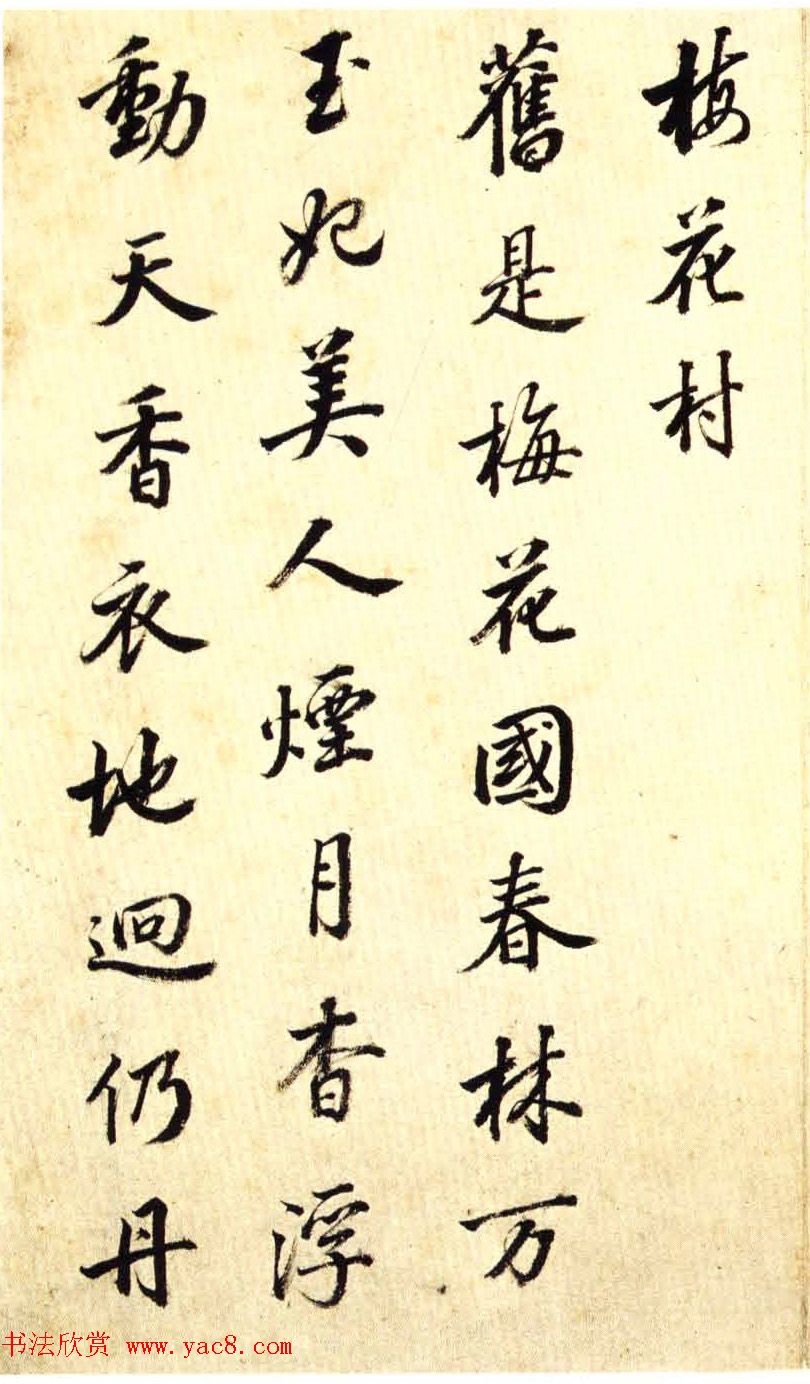 梅花村
舊是梅花國春林万
玉妃美人煙月杳浮
動天香衣地迥仍丹
书法欣赏 www.yac8.com